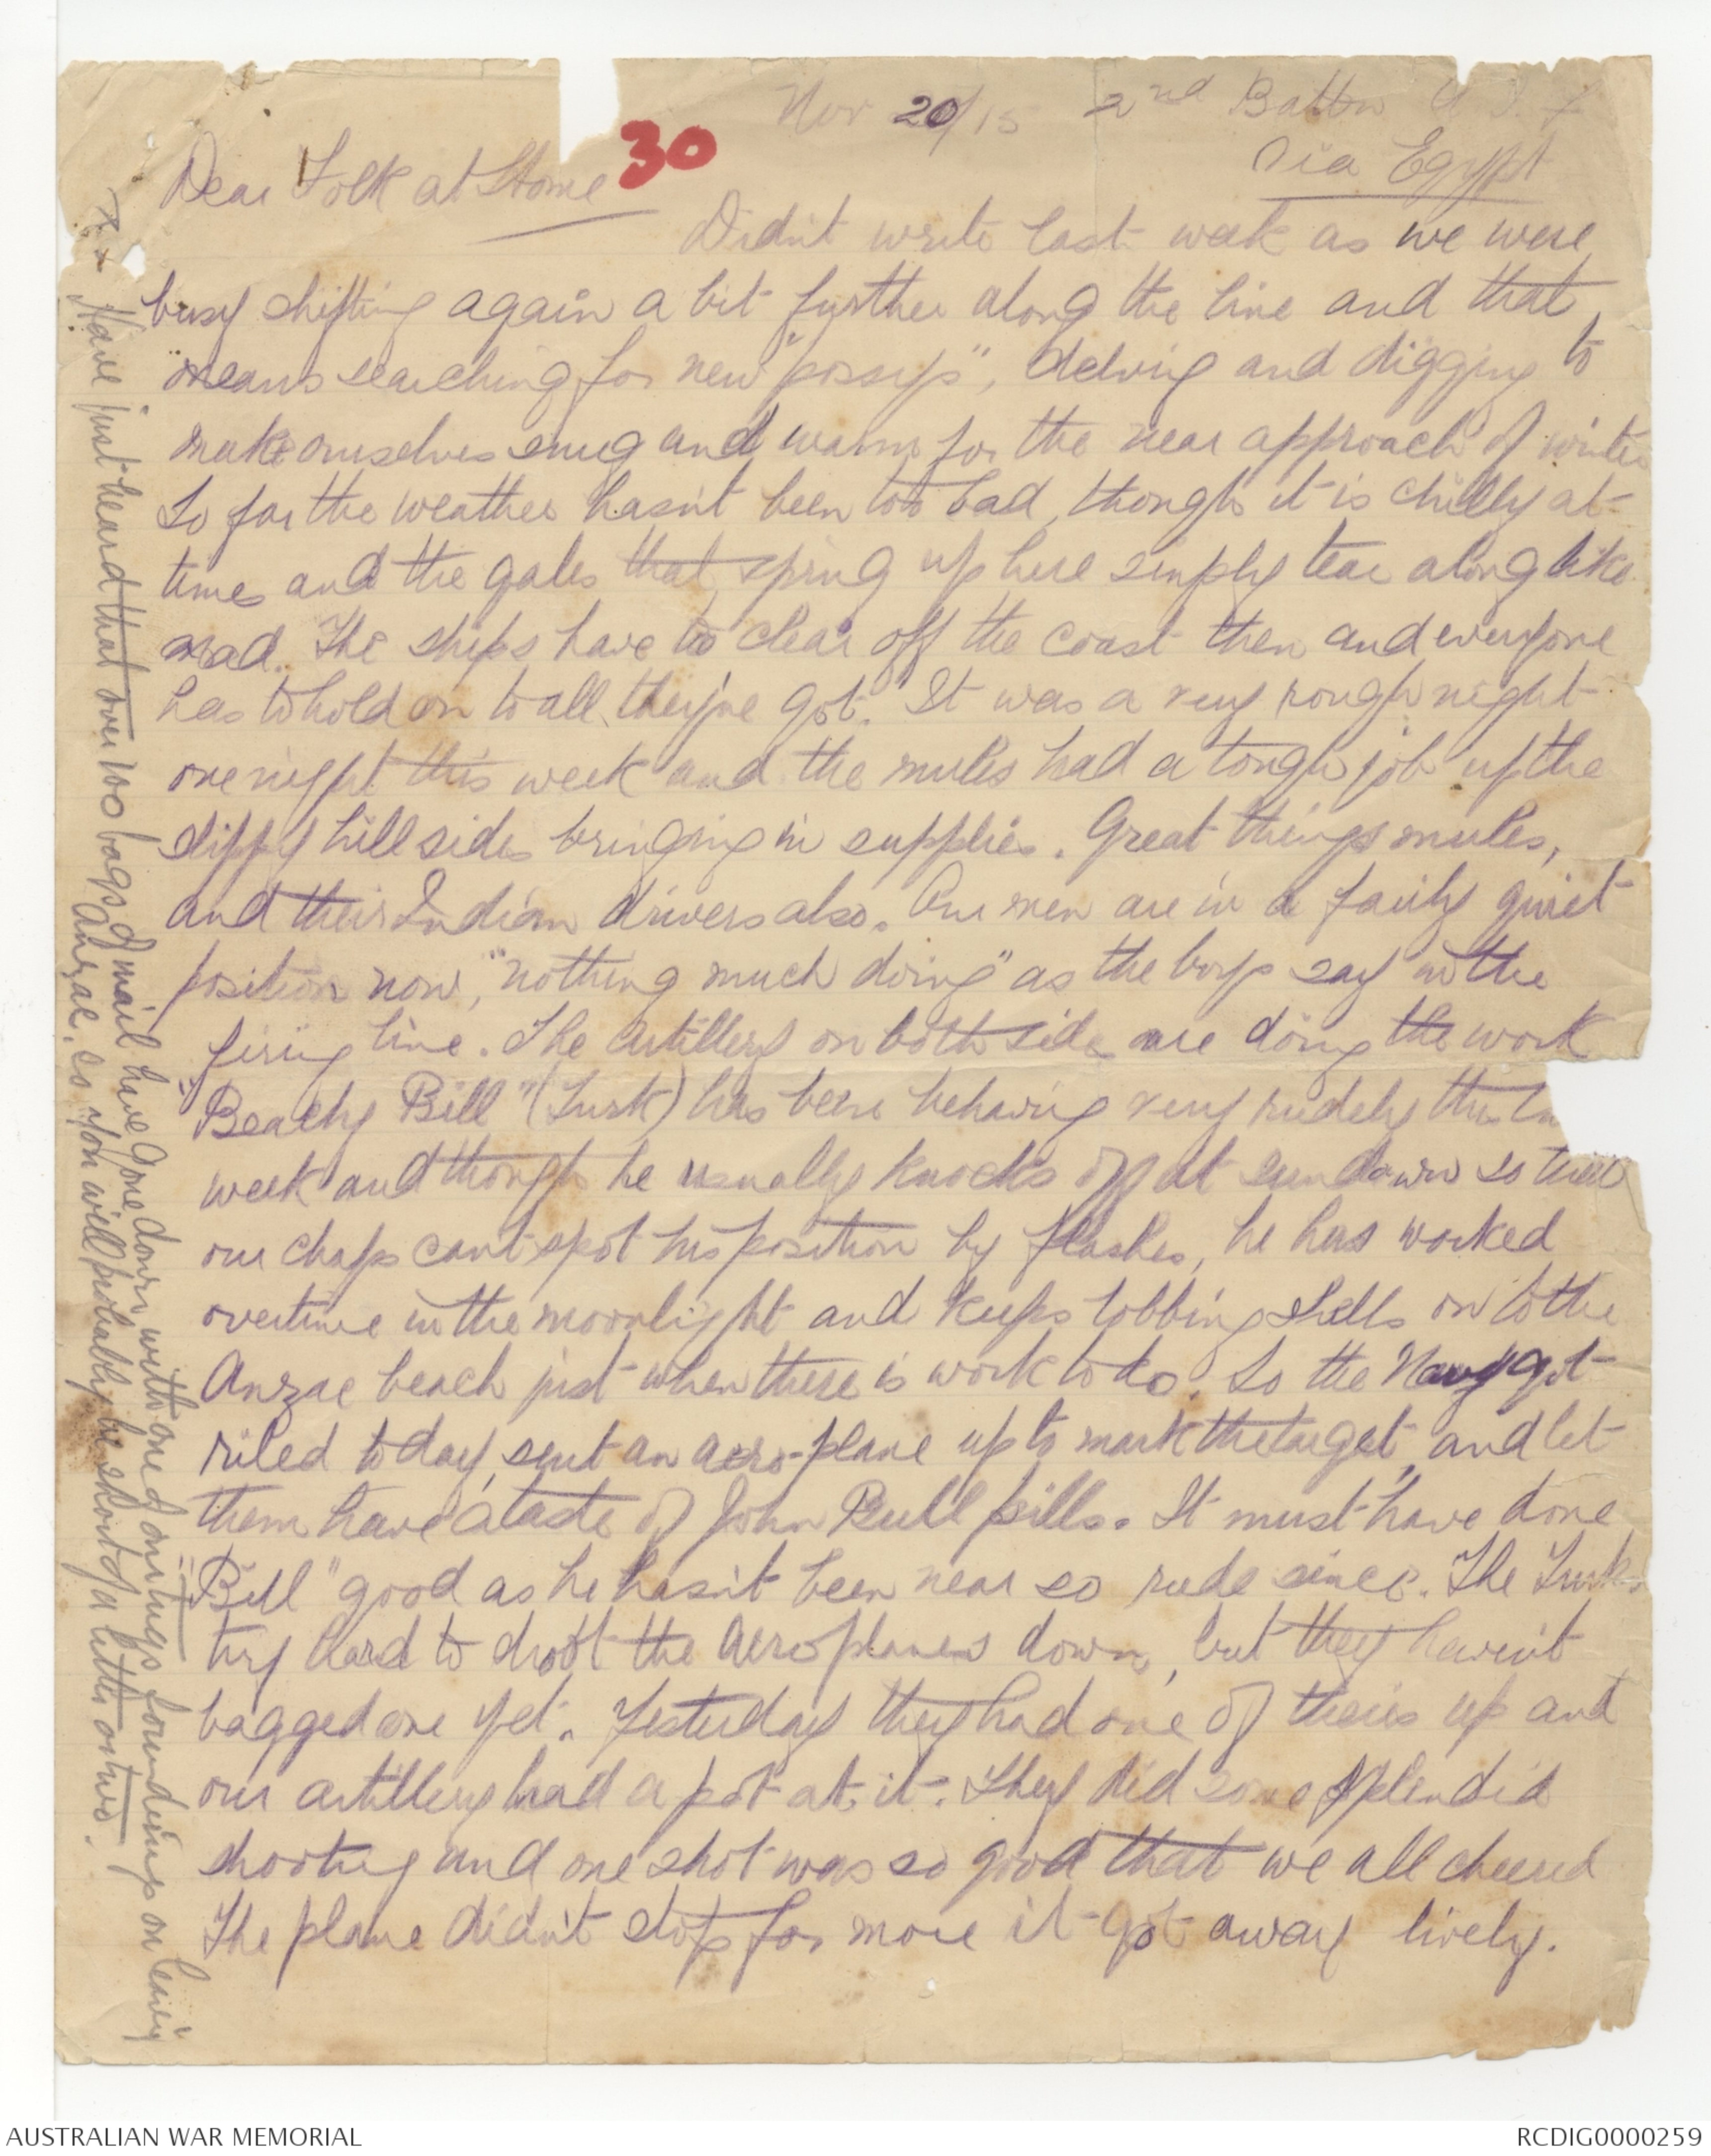 Nov 20/15 2nd Battn A I F
Via Egypt
30
Dear Folk at Home
Didn't write last week as we were
busy shifting again a bit further along the line and that
means searching for new "possys", delving and digging to
make ourselves snug and warm for the near approach of winter
So far the weather hasn't been too bad, though it is chilly at
times and the gales that spring up here simply tear along like
mad. The ships have to clear off the coast then and everyone
has to hold on to all they've got. It was a very rough night
one night this week and the mules had a tough job up the
slippy hillsides bringing in supplies. Great things mules,
and their Indian drivers also. Our men are in a fairly quiet
position now, "nothing much doing" as the boys say in the
firing line. The artillery on both sides are doing the work
"Beachy Bill" (Turk) has been behaving very rudely this
week and though he usually knocks off at sundown so that
our chaps can't spot his position by flashes, he has worked
overtime in the moonlight and keeps lobbing shells on to the
Anzac beach just when there is work to do. So the Navy got
riled today, sent an aero-plane up to mark the target, and let
them have a taste of John Bull pills. It must have done
"Bill" good as he hasn't been near so rude since. The Turks
try hard to shoot the aeroplanes down, but they haven't
bagged one yet. Yesterday they had one of theirs up and
our artillery had a pot at it. They did some splendid
shooting and one shot was so good that we all cheered
The plane didn't stop for more it got away lively.
Have just heard that over 100 bags of mail have gone down with one of our tugs foundering on leaving
Anzac. So you will probably be short of a letter or two.
AUSTRALIAN WAR MEMORIAL
RCDIG0000259